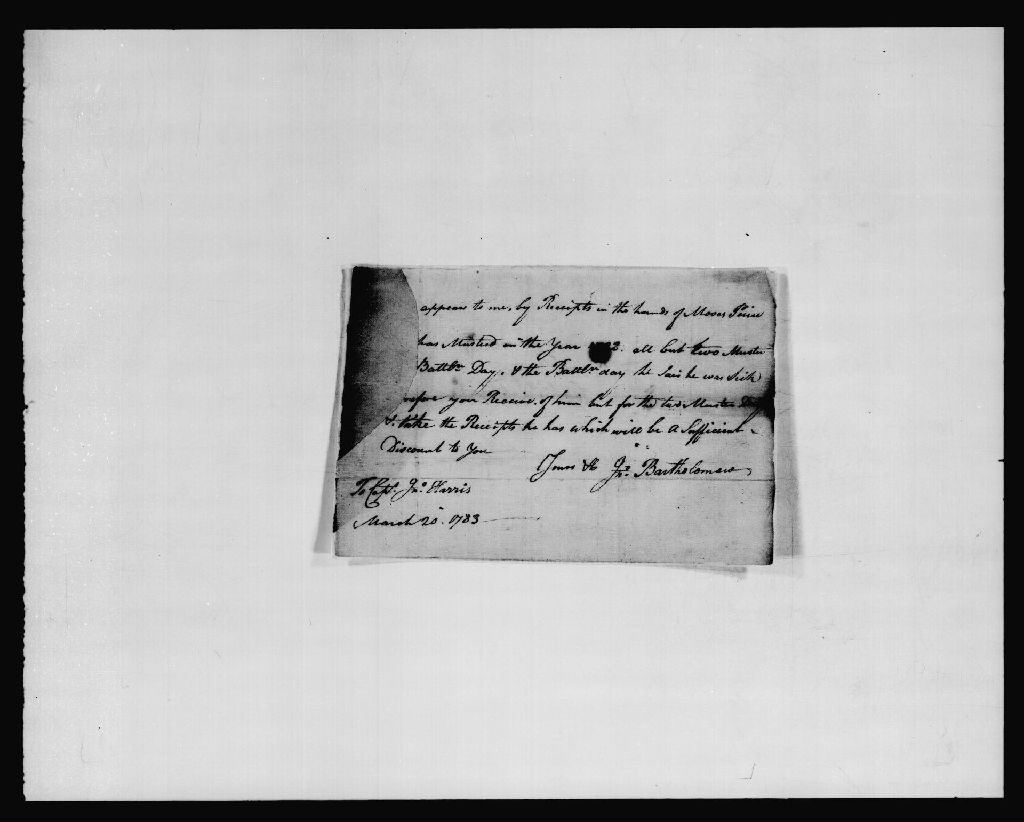 appears to me, by Receipts in the hands of Moses
has Mustred in the Year all but two Muster
Battln Day, & the Battln day he Sais he was Sick
you Receive of him but for the two Muster Days
& take the Receipts he has which will be a Sufficient
Discount to You
Yours &c Jno. Bartholomew
To Capt. Jno. Harris
March 20. 1783